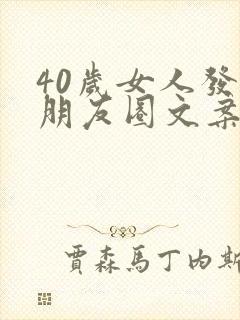 40歲女人發
朋友圈文案
賈森馬丁內斯